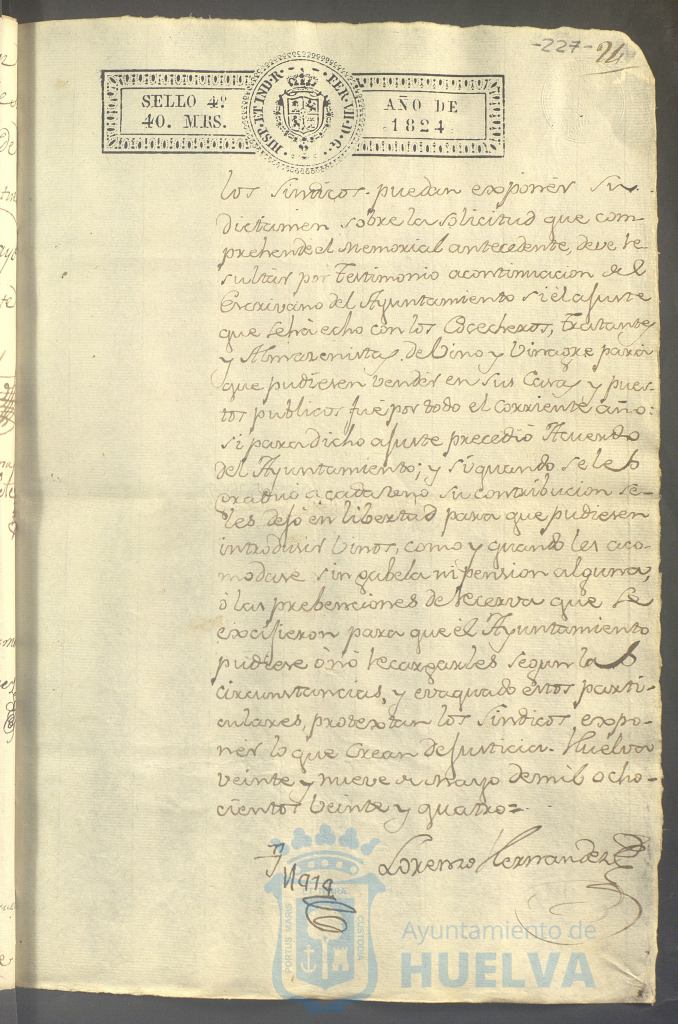 -227- 24
SELLO 4º
40. MRS.
HISP. ET IND. R. FER. VII. D. G.
AÑO DE
1824
los Sindicos puedan exponer su
dictamen sobre la solicitud que com-
prehende el Memorial antecedente, deve re
sultar por Testimonio acontinuacion del
Escrivano del Ayuntamiento si el ajuste
que seha echo con los Cocecheros, Tratantes
y Almazenistas de Vino y Vinagre para
que pudiesen vender en sus Casas y pues-
tos publicos fue por todo el corriente año:
si para dicho ajuste precedió Acuerdo
del Ayuntamiento; y si quando se les
graduó a cada uno su contribucion se-
les dejó en libertad para que pudiesen
introducir Vinos, como y quando les aco-
modase sin gabela ni pension alguna,
ó las prebenciones de recerva que se
excijieron para que el Ayuntamiento
pudiese ó nó recargarles segun las
circunstancias, y evaquado estos parti-
culares, protextan los Sindicos expo-
ner lo que crean de justicia. Huelva
veinte y nueve de Mayo de mil ocho-
cientos veinte y quatro=
Lorenzo Hernandez
PORTUS MARIS
ET TERRÆ
CUSTODIA
Ayuntamiento de
HUELVA